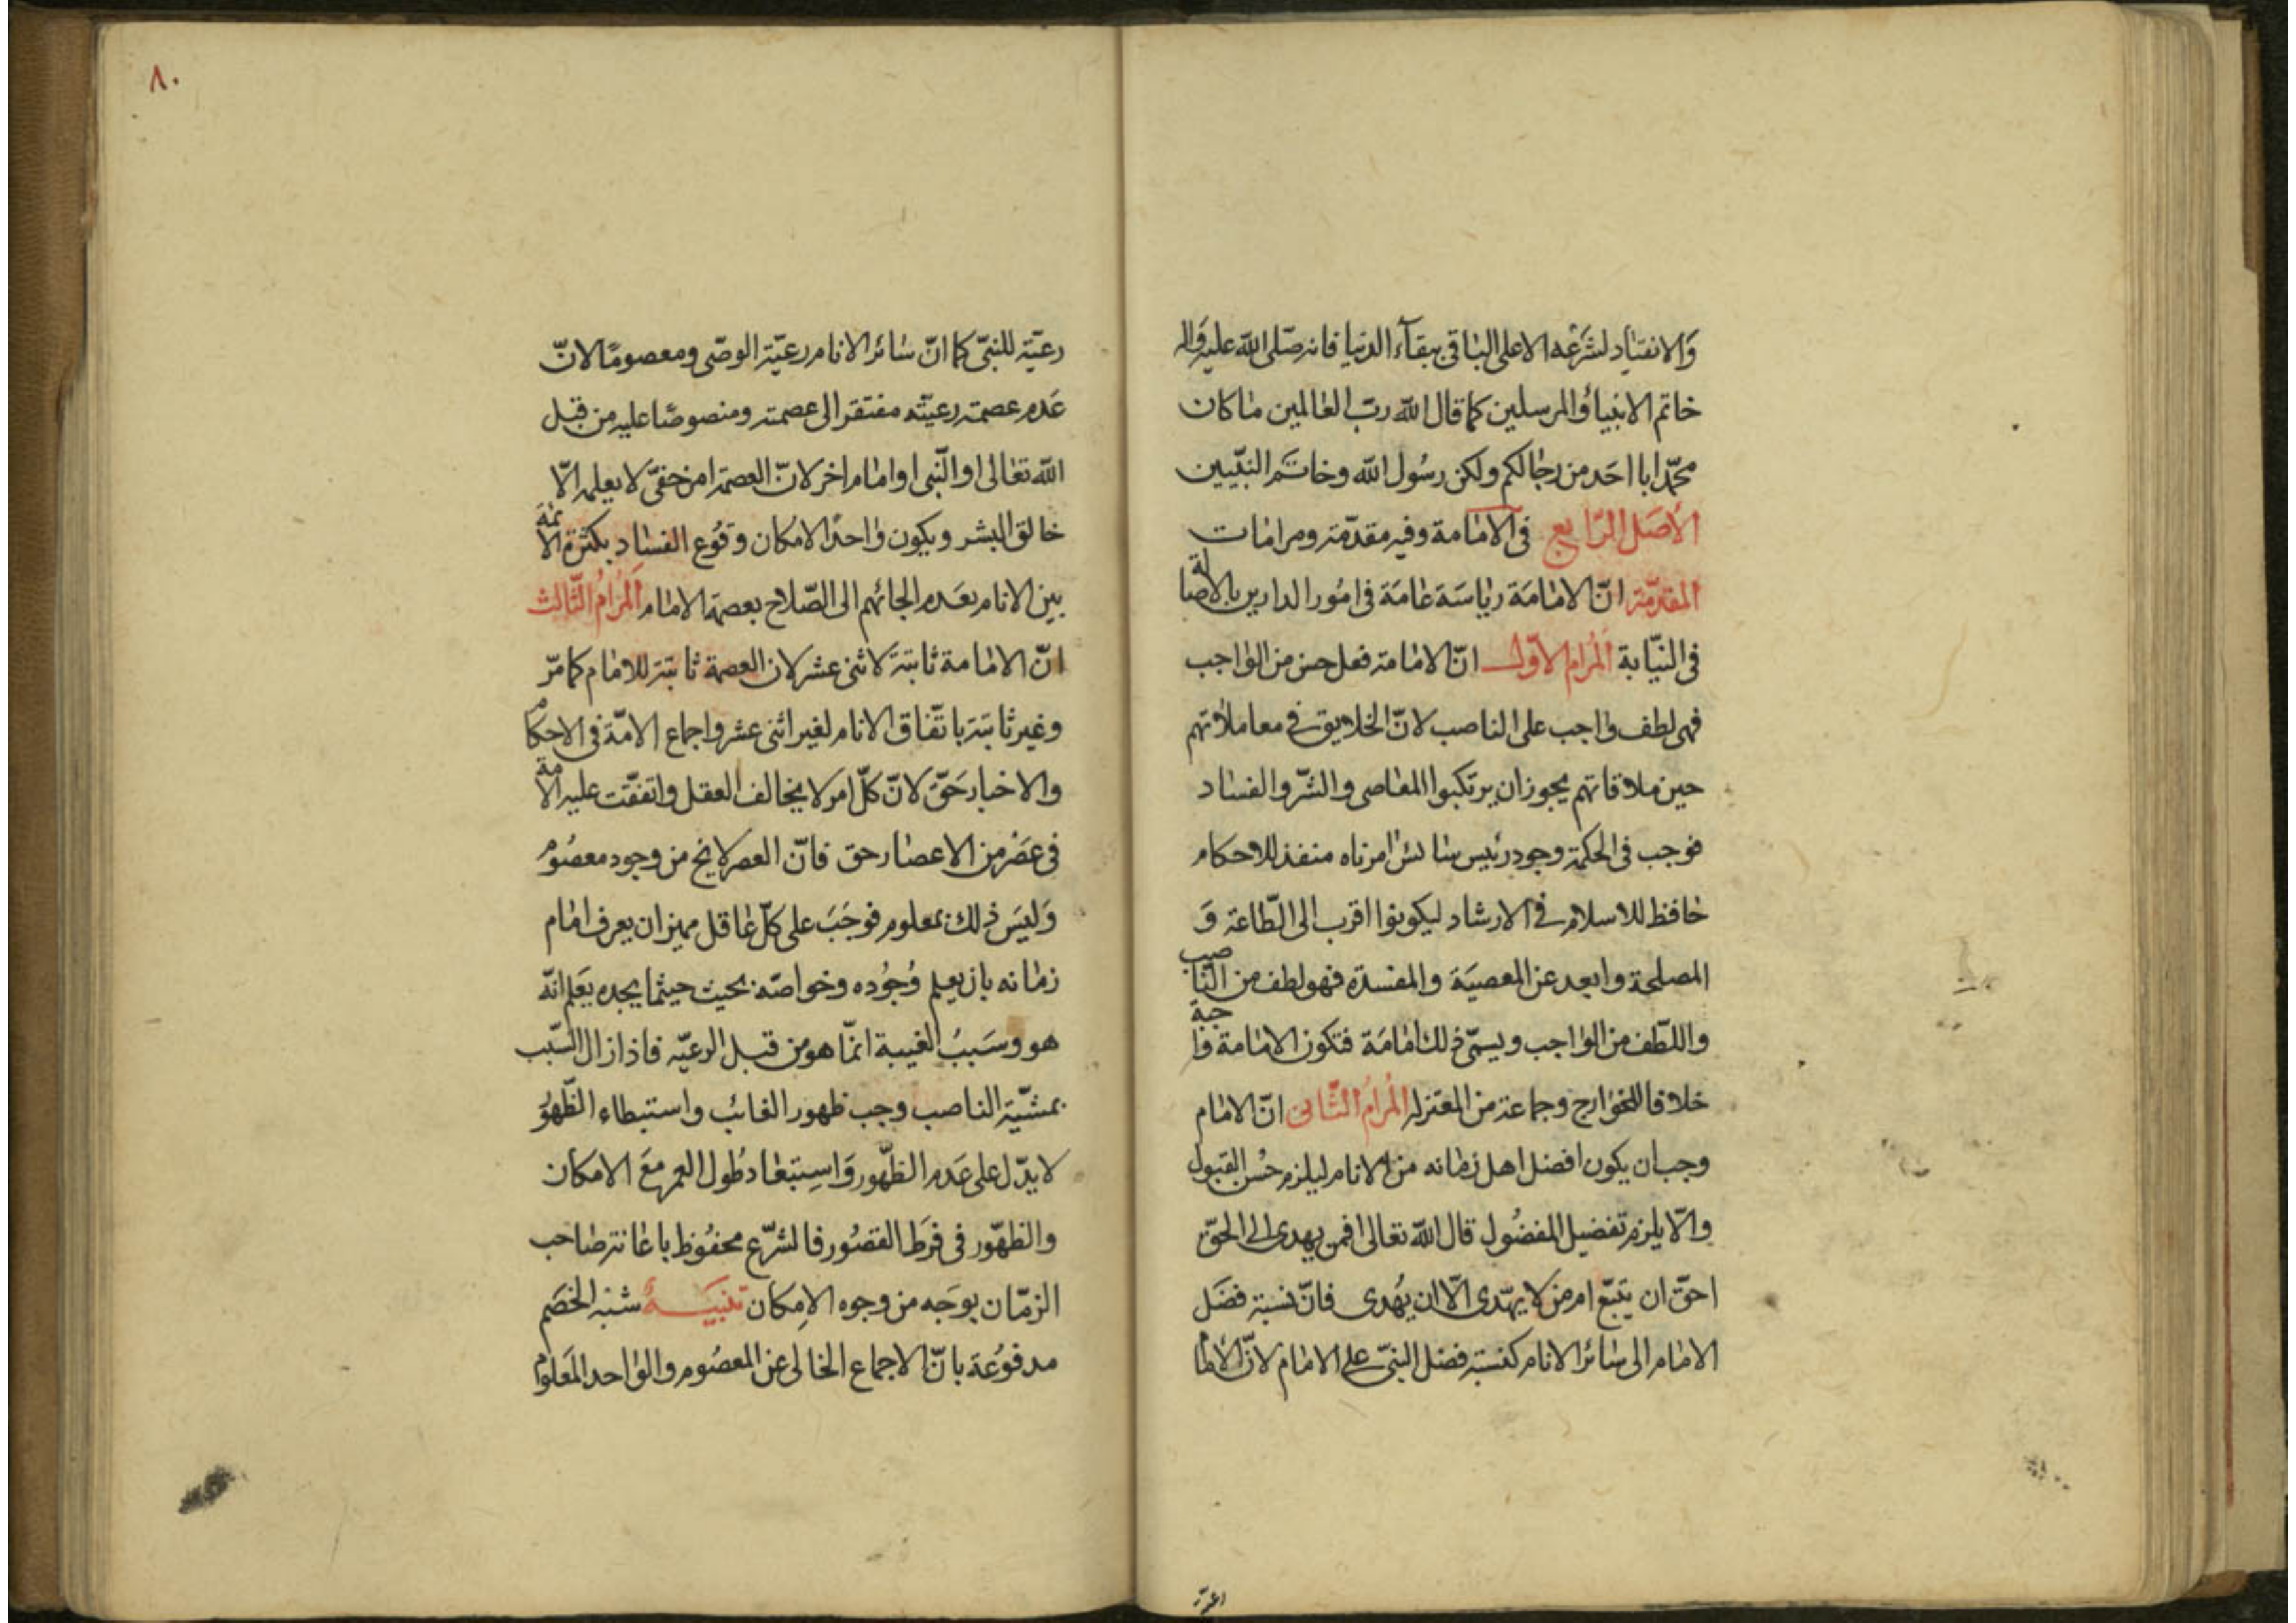 والانقیاد لشرعه الاعلی الباقی ببقآء الدنیا فانه صلی الله علیه واله
خاتم الانبیاؤ المرسلین کما قال الله ربّ العالمین ما کان
محمّد ابا احَد من رجالکم ولکن رسُول الله وخاتَم النبّیین
الاصَل الرّابع فی الامامة وفیه مقدّمة ومرامات
المقدّمة انّ الامامَة ریاسَة عامَة فی امُور الدارین بالاصالة
فی النّیابة المُرام الاوّل انّ الامامة فعل حسن من الواجب
فهی لطف واجب علی الناصب لانّ الخلایق فی معاملاتهم
حین ملاقاتهم یجوز ان یرتکبوا المعاصی والشّر والفساد
فوجب فی الحکمة وجود رئیس سائس امر ناه منفذ للاحکام
حافظ للاسلام فی الارشاد لیکونوا اقرب الی الطّاعة وَ
المصلحة وابعد عن المعصیَة والمفسدة فهو لطف من الناصب
واللّطف من الواجب ویسمّی ذلك امامَة فتکون الامامة واجبة
خلافا للخوارج وجماعة من المعتزله المُرامُ الثّانی انّ الامام
وجب ان یکون افضل اهل زمانه من الانام لیلزم حُسن القبول
والّا یلزم تفضیل المفضُول قال الله تعالی افمن یهدی الی الحقّ
احقّ ان یتبّع امر من لا یهّدی الّا ان یُهدی فانّ نسبة فضَل
الامام الی سائر الانام کنسبة فضل النبیّ علی الامام لانّ الاما
رعیّة للنبیّ کما انّ سائر الانام رعیّة الوصّی ومعصومًا لانّ
عَدم عصمته رعیّته مفتقر الی عصمته ومنصوصًا علیه من قبل
الله تعالی او النّبی او امام اخر لانّ العصمة امر خفیّ لا یعلمه الّا
خالق البشر ویکون واحدًا لامکان وقوُع الفساد بکثرة الائمة
بین الانام بعَدم الجائهم الی الصّلاح بعصمة الامام المُرامُ الثّالث
انّ الامامة ثابتَة لاثنی عشر لان العصمة ثابتة للامام کما مرّ
وغیر ثابتة باتّفاق الانام لغیر اثنی عشر واجماع الامّة فی الاحکام
والاخبار حَقّ لانّ کلّ امر لا یخالف العقل واتفقت علیه الامة
فی عصَر من الاعصار حق فانّ العصر لا یخ من وجود معصُوم
وَلیسَ ذلك بمعلوم فوجَبَ علی کلّ عاقل ممیز ان یعرف امام
زمانه بان یعلم وُجُوده وخواصّه بحیث حیثما یجده یعَلم انّه
هو وسَببُ الغیبة انّما هو من قبل الرعیّه فاذا زال السّبب
بمشیّة الناصب وجب ظهور الغائب واستبطاء الظّهوُر
لا یدّل علی عَدم الظّهور وَاسِتبعَاد طُول العمر معَ الامکان
والظهّور فی فرَط القصُور فالشرّع محفُوظ باعانة صاحب
الزمّان بوجَه من وجوه الاِمکان تنبیَهٌ شبه الخصَم
مدفوُعَة بانّ الاجماع الخالی عن المعصُوم والواحد المَعلوم
۸۰